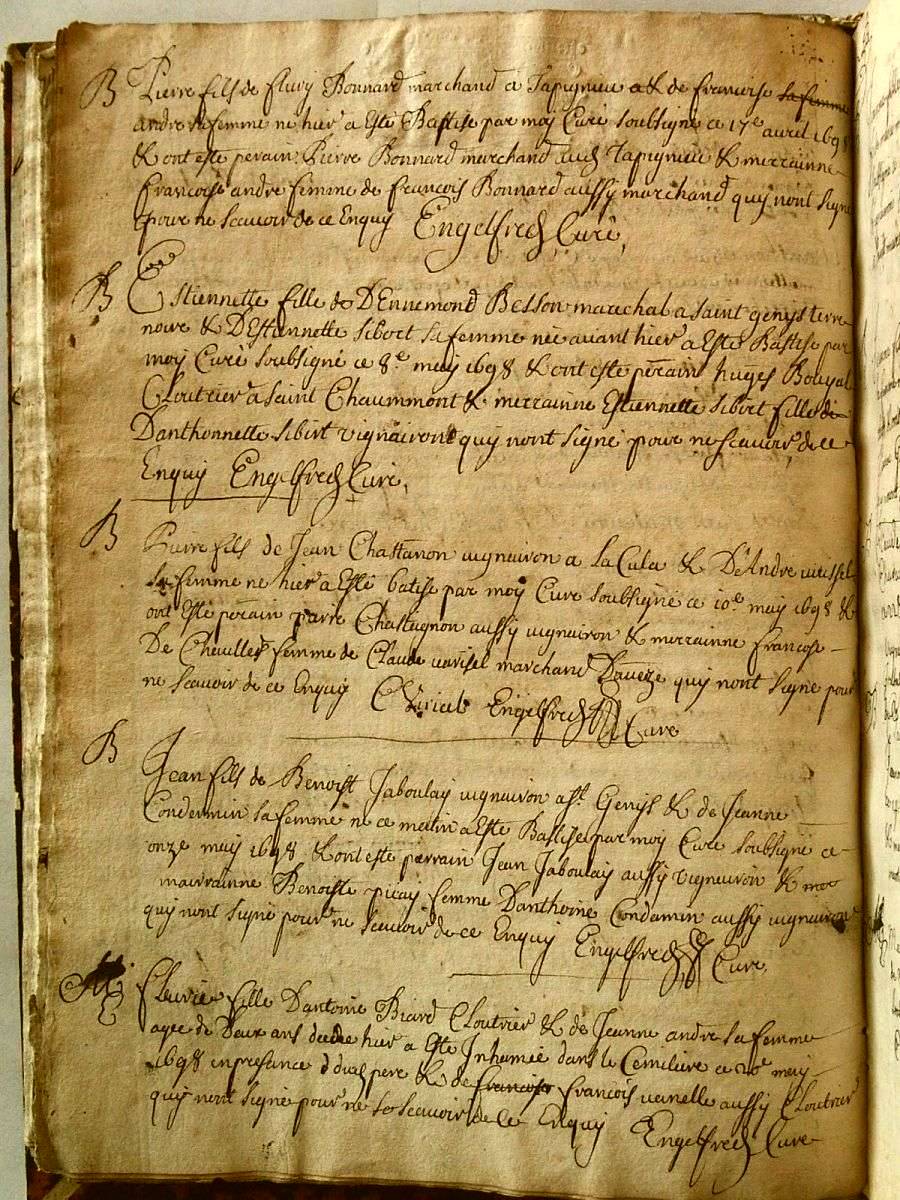 B Pierre fils de fleury Bonnard marchand a Tapignieu et & de francoise sa femme
andre sa femme ne hier a Esté Baptise par moy Curé soubsigné ce 17e avril 1698
& ont este perain Pierre Bonnard marchand aud Tapignieu & merrainne
francoise andre femme de francois Bonnard aussy marchand quy nont signe
pour ne scauoir de ce Enquy Engelfred Curé
B Estiennette fille de DEnnemond Besson marechal a saint genys terre
noire & DEstiennette sibert sa femme née auant hier a Este Batise par
moy Curé soubsigné ce 8e may 1698 & ont este perain huges
Cloutrier a saint Chaummont & merrainne Estiennette sibert fille de
Danthonnette sibert vignairont quy nont signé pour ne scauoir de ce
Enquy Engelfred Curé
B Pierre fils de Jean Chastanon uignairon a La Cula & DeAndre
sa femme ne hier a Esté batise par moy Curé soubsigné ce 10e may 1698 &
ont Esté perain pierre Chastagnon aussy uignairon & merrainne francoise
De femme de Claude marchand quy nont signe pour
ne scauoir de ce Enquy Engelfred Curé
B Jean fils de Benoist Jaboulay uignairon a st Genys & de Jeanne
Condermin sa femme ne ce matin a Este Batise par moy Cure soubsigné ce
onze may 1698 & ont este parrain Jean Jaboulay aussy vigneuron & mar
marrainne Benoiste picay femme Danthoine Condamin aussy uignairon
quy nont signé pour ne scauoir de ce Enquy Engelfred Cure
fleurie fille Dantoine Biard Cloutrier & de Jeanne andre sa femme
agee de Deux ans decede hier a Este Inhumée dans le Cemitiere ce may
1698 en presance dud pere & de francoise francois uernelle aussy Cloutrier
quy nont signé pour ne le scauoir de ce Enquy Engelfred Cure